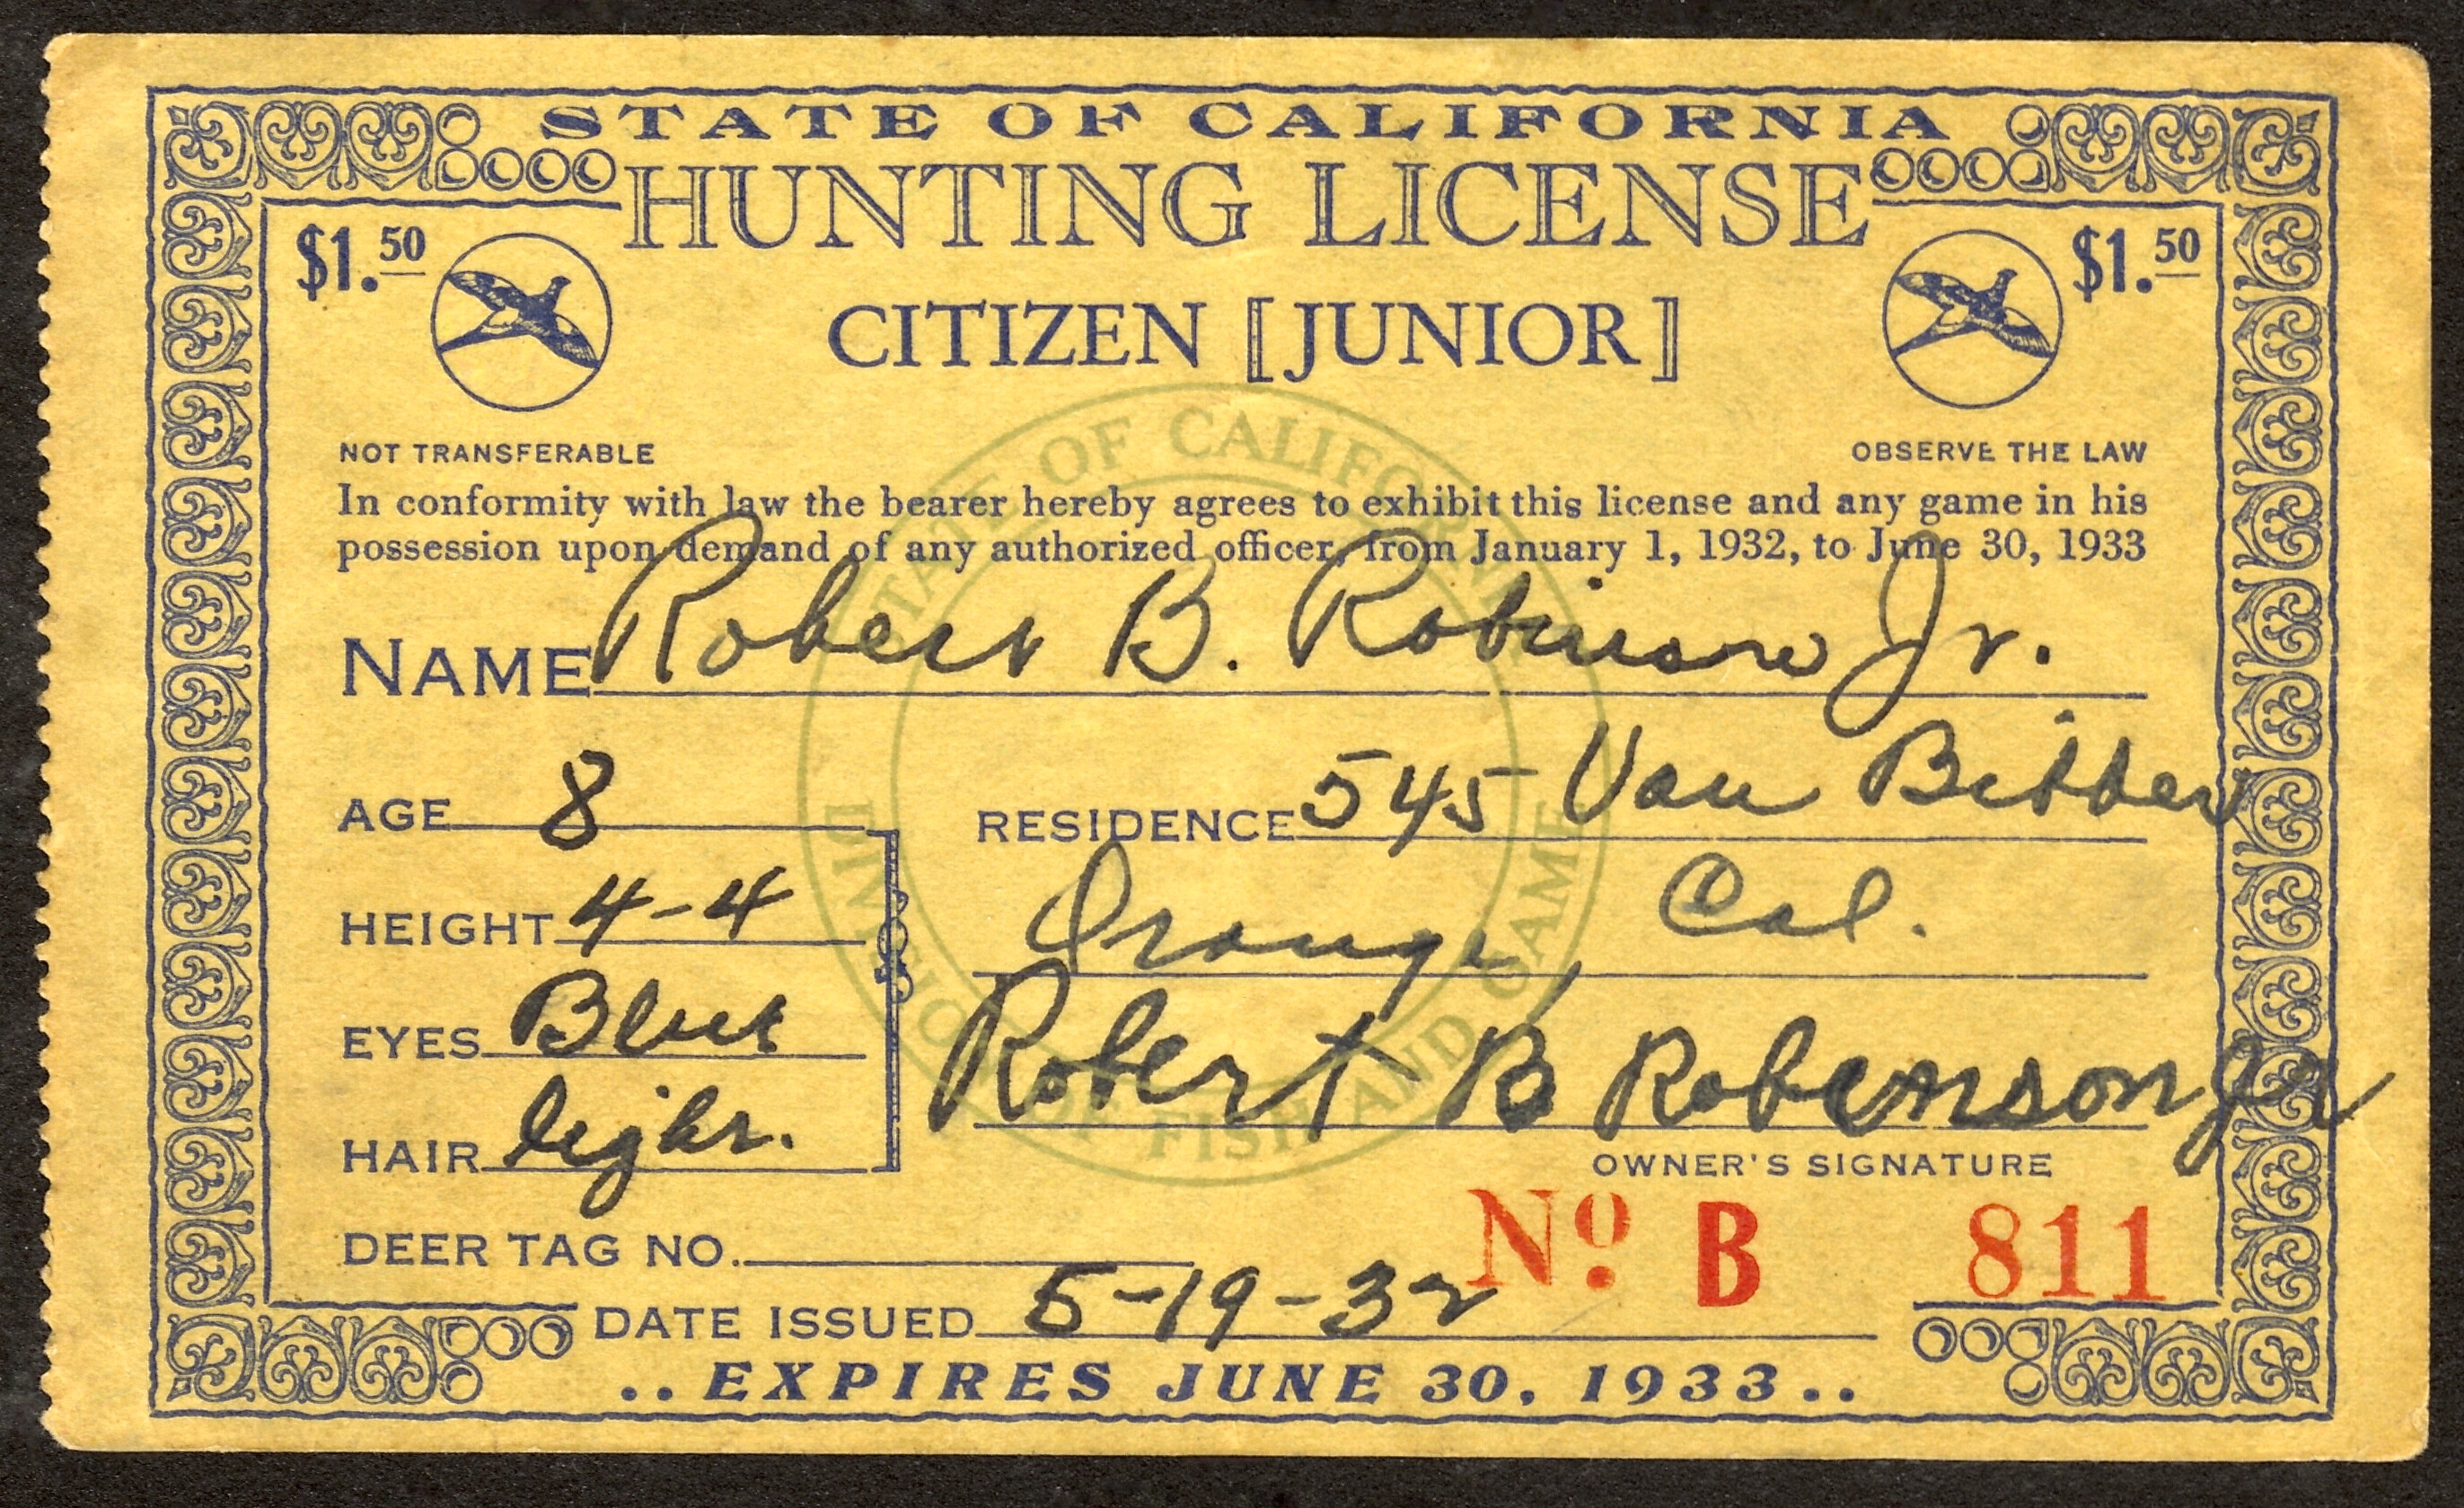 STATE OF CALIFORNIA
HUNTING LICENSE
$1.50 $1.50
CITIZEN [JUNIOR]
NOT TRANSFERABLE OBSERVE THE LAW
In conformity with law the bearer hereby agrees to exhibit this license and any game in his
possession upon demand of any authorized officer, from January 1, 1932, to June 30, 1933
NAME Robert B. Robinson Jr.
AGE 8 RESIDENCE 545 Van Bibber
HEIGHT 4-4 Orange, Cal.
EYES Blue Robert B Robinson Jr
HAIR light. OWNER'S SIGNATURE
DEER TAG NO. No. B 811
DATE ISSUED 5-19-32
..EXPIRES JUNE 30, 1933..
STATE OF CALIFORNIA
DIVISION OF FISH AND GAME